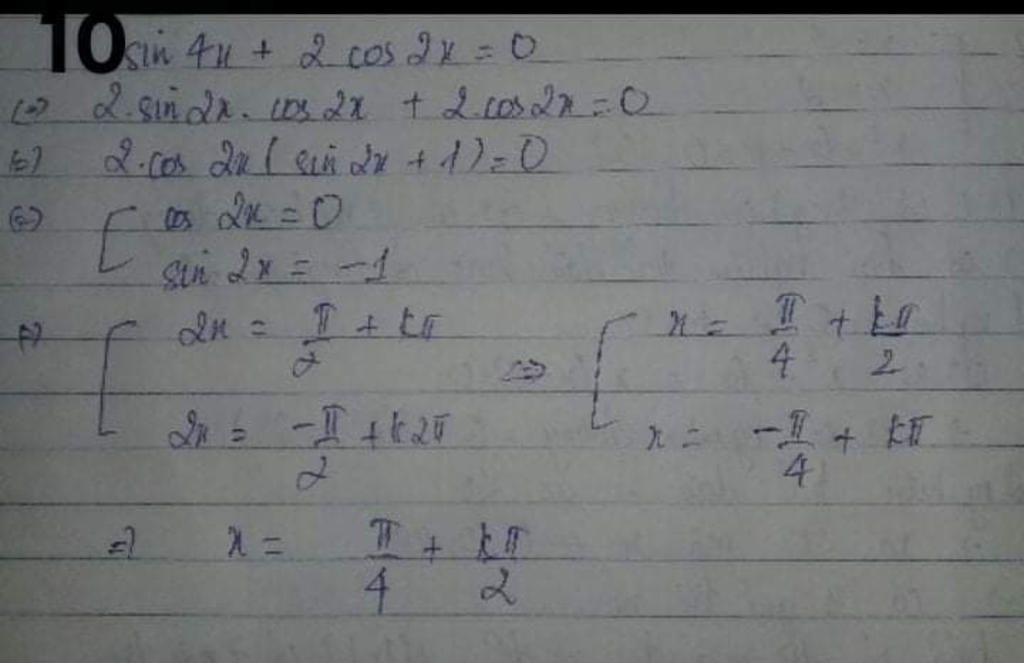 10 sin 4x + 2 cos 2x = 0
(=) 2.sin 2x. cos 2x + 2.cos 2x = 0
(=) 2.cos 2x ( sin 2x + 1 ) = 0
(=) [ cos 2x = 0
sin 2x = -1
(=) [ 2x = π/2 + kπ <=> [ x = π/4 + kπ/2
2x = -π/2 + k2π x = -π/4 + kπ
=> x = π/4 + kπ/2